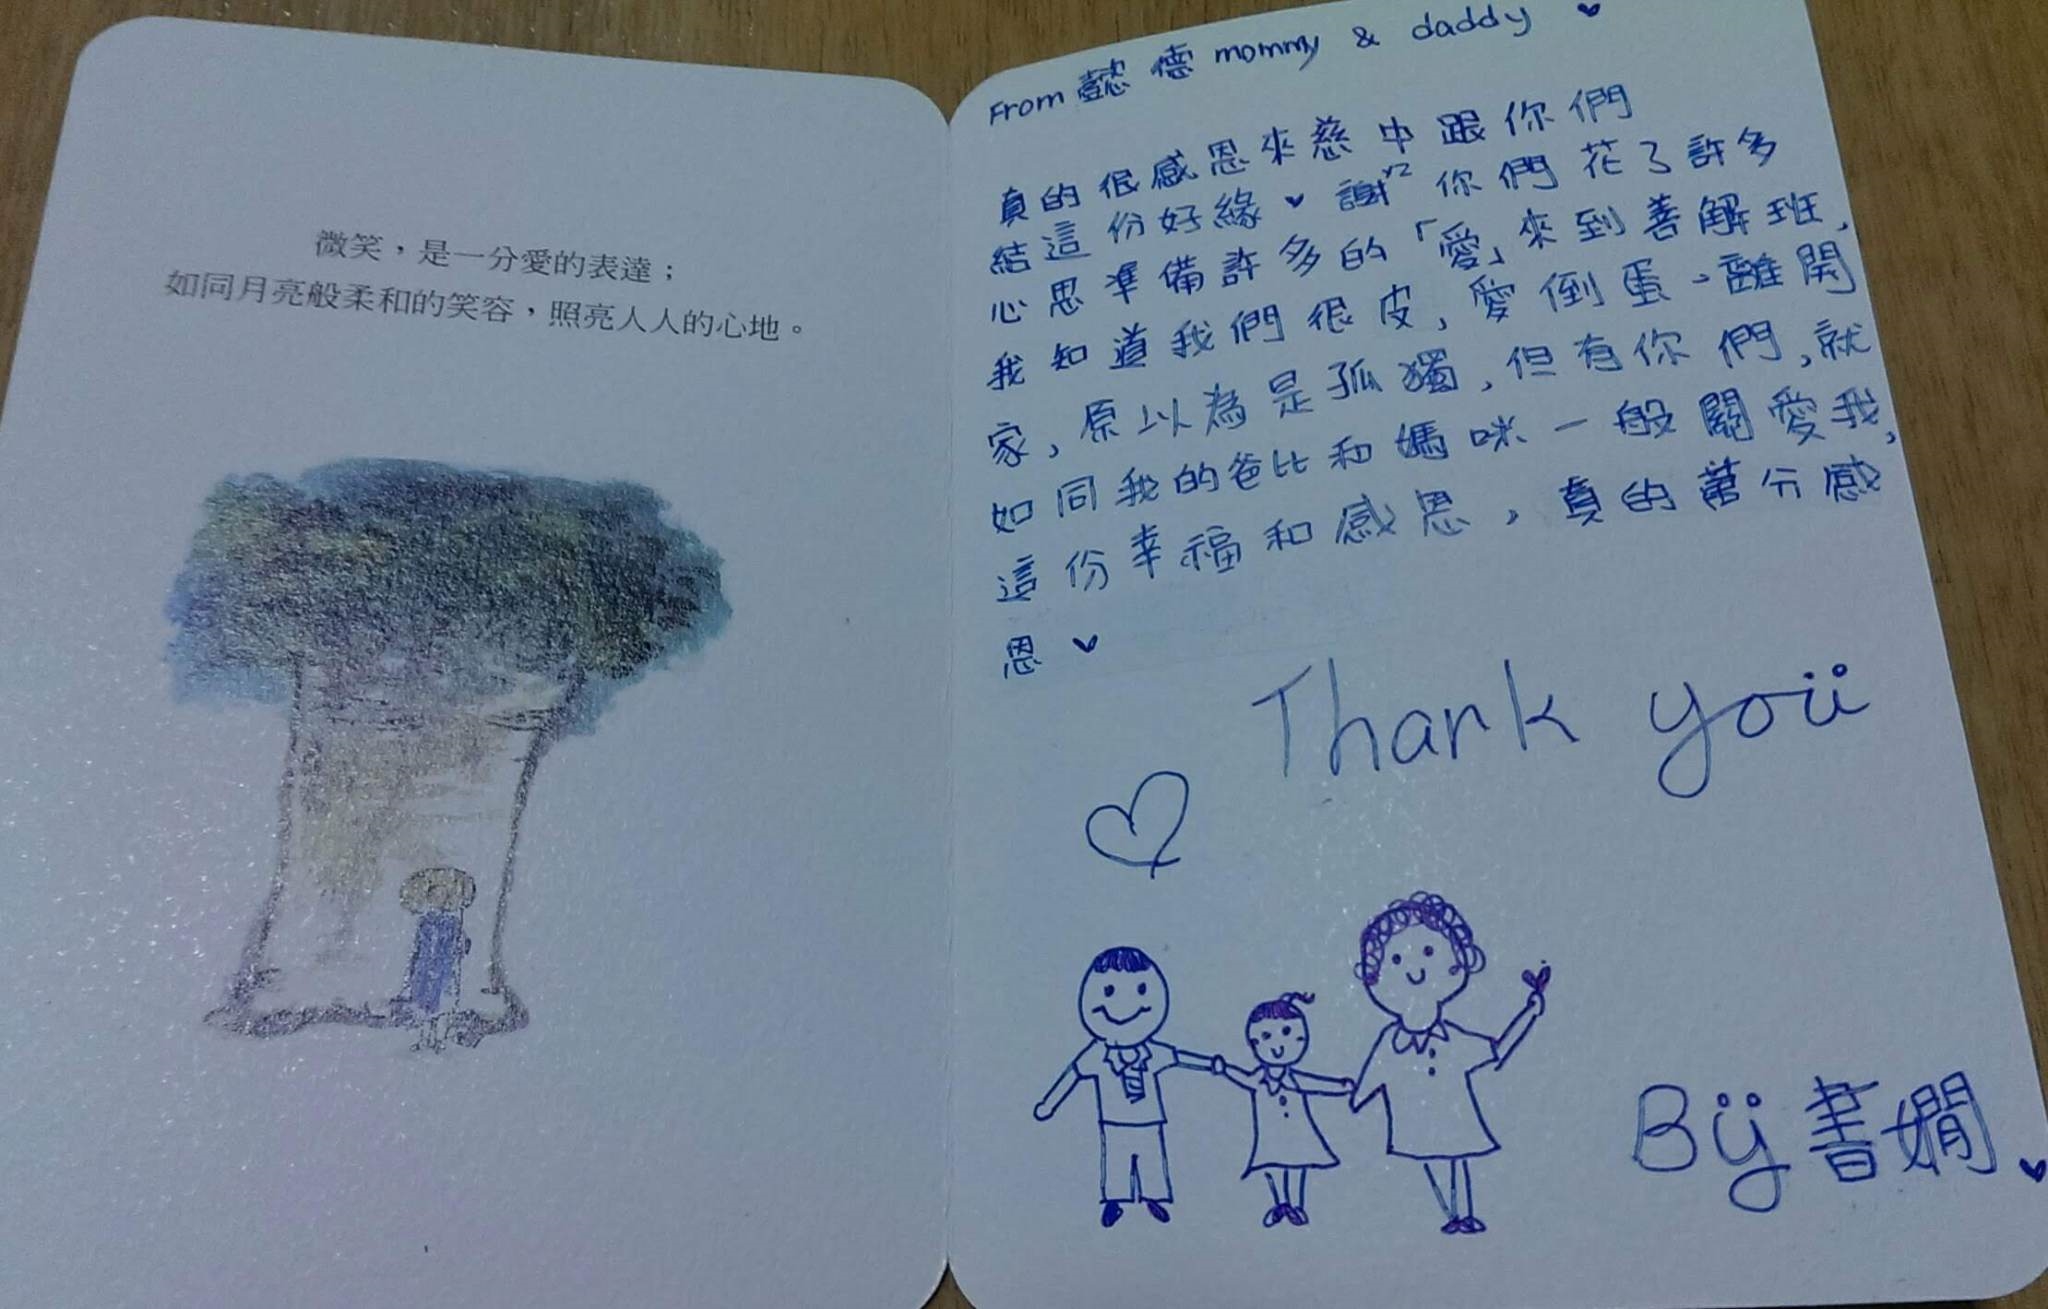 微笑，是一分愛的表達；
如同月亮般柔和的笑容，照亮人人的心地。
From 懿德 mommy & daddy ♥
真的很感恩來慈中跟你們
結這份好緣♥謝^2你們花了許多
心思準備許多的「愛」來到善解班，
我知道我們很皮，愛倒蛋、離開
家，原以為是孤獨，但有你們，就
如同我的爸比和媽咪一般關愛我，
這份幸福和感恩，真的萬分感
恩♥
Thank you
By 書嫺♥